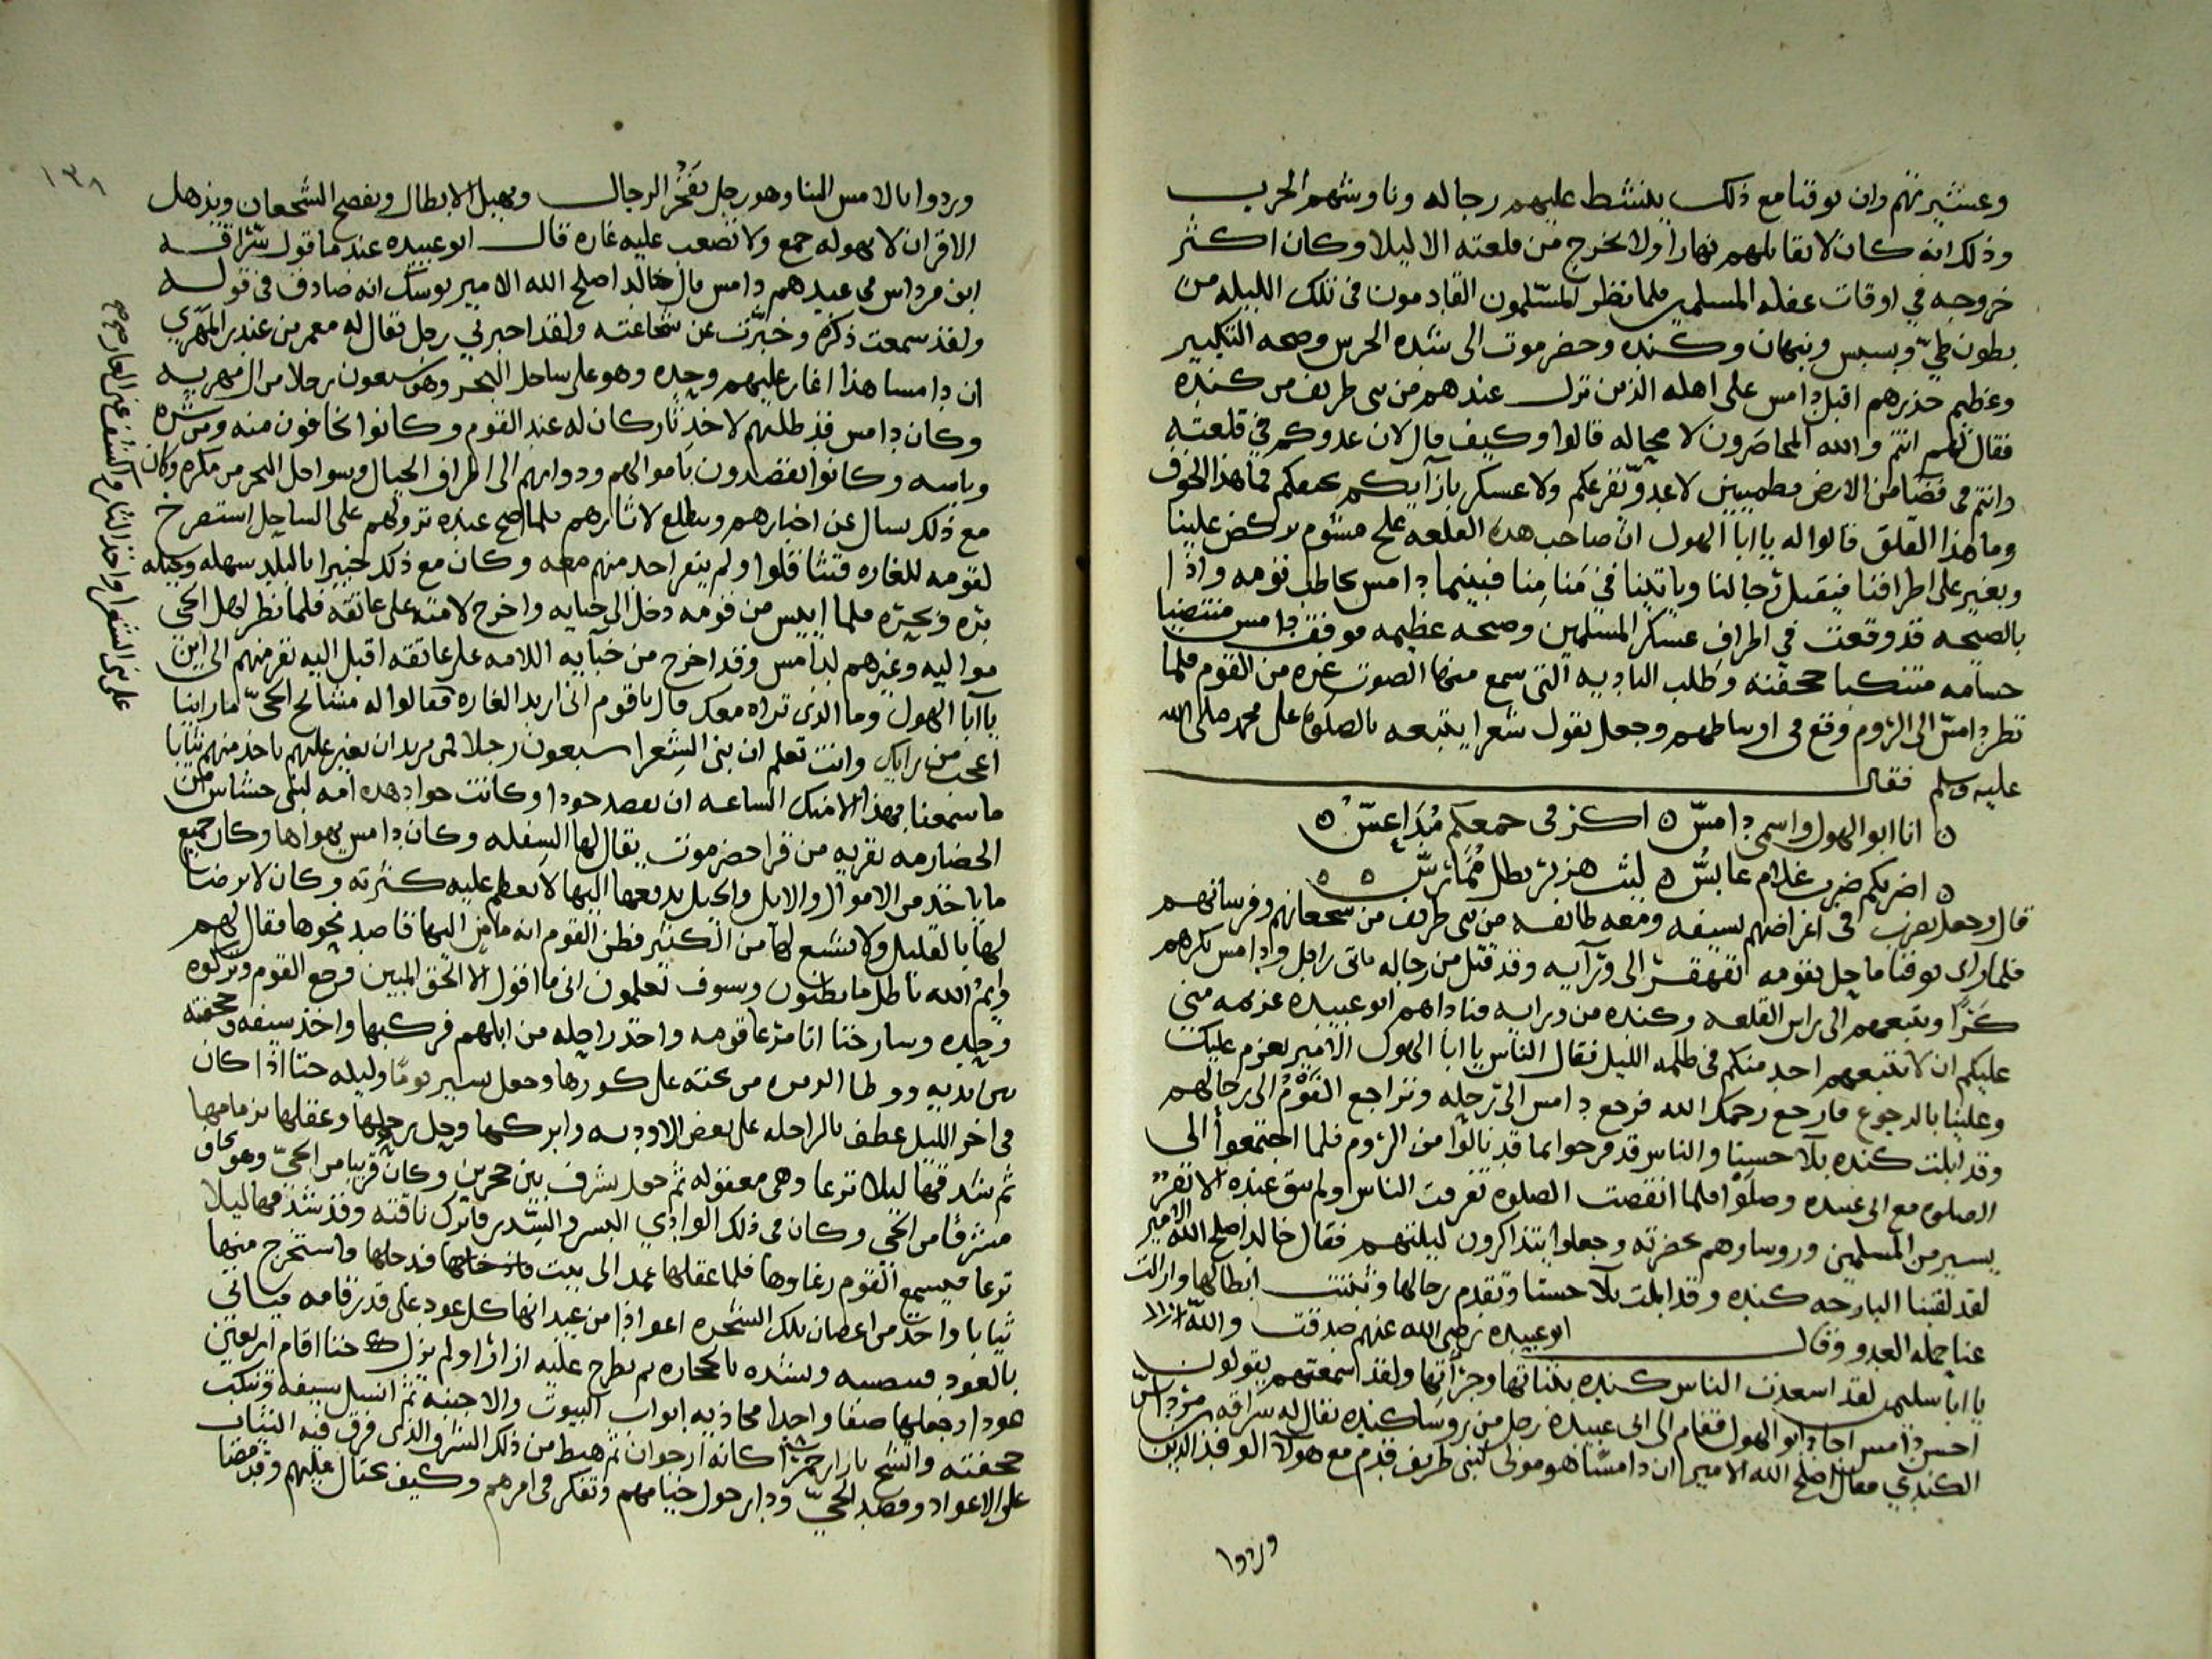 وعشيرتهم وان يوقنا مع ذلك ينشط عليهم رجاله وناوشهم الحرب
وذلك انه كان لا يقاتلهم نهارا ولا يخرج من قلعته الا ليلا وكان اكثر
خروجه في اوقات غفله المسلمين فلما نظر المسلمون القادمون في تلك الليله من
بطون طيّ وسبس ونبهان وكنده وحضرموت الى شده الحرس وصحه التكبير
وعظيم حذرهم اقبل دامس على اهله الذين نزل عندهم من بنى طريف من كنده
فقال لهم انتم والله المحاصرون لا محاله قالوا وكيف قال لان عدوكم في قلعته
وانتم في فضا من الارض مطمينين لا عدوّ نفزعكم ولا عسكر بازآيكم فما هذا الخوف
وما هذا القلق قالوا له يا ابا الهول ان صاحب هذه القلعه علج مشوم يركض علينا
ويغير على اطرافنا فيقتل رجالنا وياتينا في منامنا فبينما دامس يخاطب قومه واذا
بالصيحه قد وقعت في اطراف عسكر المسلمين وصيحه عظيمه فوقف دامس منتضيا
حسامه متنكبا حجفته وطلب الناديه التى سمع منها الصوت غيره من القوم فلما
نظر دامسّ الى الروم وقع في اوساطهم وجعل يقول شعرا يتبعه بالصلوة على محمد صلى الله
عليه وسلم فقال
انا ابو الهول واسمى دامسّ اكر فى جمعكم مداعسّ
اضربكم ضرب غلام عابسّ ليث هزبر بطل ممارسّ
قال وجعل يضرب في اعراضهم بسيفه ومعه طايفه من بنى طريف من شجعانهم وفرسانهم
فلما راى يوقنا ما حل بقومه تقهقر الى ورآيه وقد قتل من رجاله ماتى راجل ودامس يكرهم
كرّا ويتبعهم الى راس القلعه وكنده من ورايه فناداهم ابو عبيده عزمه منى
عليكم ان لا يتبعهم احد منكم في ظلمه الليل فقال الناس يا ابا الهول الامير يعزم عليك
وعلينا بالرجوع فارجع رحمك الله فرجع دامس الى رحله وتراجع القوم الى رحالهم
وقد ابلت كنده بلآ حسنا والناس قد فرحوا بما قد نالوا من الروم فلما اجتمعوا الى
الصلوه مع ابى عبيده وصلوا فلما انقضت الصلوه تفرقت الناس ولم يبق عنده الا نفر
يسير من المسلمين وروساوهم بحضرته وجعلوا يتذاكرون ليلتهم فقال خالد اصلح الله الامير
لقد لقينا البارحه كنده وقد ابلت بلآ حسنا وتقدم رجالها وثبتت ابطالها وازالت
عنا حمله العدو وقال ابو عبيده رضى الله عنهم صدقت والله
يا ابا سليمن لقد اسعدت الناس كنده بثباتها وجراتها ولقد سمعتهم يقولون
احسن دامس اجاد ابو الهول فقام الى ابى عبيده رجل من روسا كنده يقال له سراقه بن مرداس
الكندي فقال اصلح الله الامير ان دامسّا هو مولى لبنى طريف قدم مع هولا الوفد الذين
وردوا

١٣٨
وردوا بالامس الينا وهو رجل يفخر الرجال ويهبل الابطال ويفصح الشجعان ويذهل
الاقران لا يهوله جمع ولا تصعب عليه غاره قال ابو عبيده عندما قول سراقه
ابن مرداس في عبدهم دامس يال خالد اصلح الله الامير يوشك انه صادق في قوله
ولقد سمعت ذكره وخبرت عن شجاعته ولقد اخبرني رجل يقال له معمر بن عندر المهري
ان دامسا هذا اغار عليهم وحده وهو على ساحل البحر وهو سبعون رجلا من ال مهريه
وكان دامس قد طلبهم لاخذ ثار كان له عند القوم وكانوا يخافون منه ومن شره
وباسه وكانوا يقصدون باموالهم ودوابهم الى اطراف الجبال وسواحل البحر من مكره وكان
مع ذلك يسال عن اخبارهم ويطلع لاثارهم فلما صح عنده نزولهم على الساحل استصرخ
لقومه للغاره فتثاقلوا ولم ينفر احد منهم معه وكان مع ذلك خبيرا بالبلد سهله وجبله
بره وبحره فلما ايس من قومه دخل الى خبايه واخرج لامته على عاتقه فلما نظر اهل الحى
مواليه وغيرهم لدامس وقد اخرج من خبآيه اللامه على عاتقه اقبل اليه نفر منهم الى اين
يا ابا الهول وما الذى نراه معك قال يا قوم انى اريد الغاره فقالوا له مشايخ الحىّ ما راينا
اعجب من رايك وانت تعلم ان بنى الشعرا سبعون رجلا فمن يريد ان يغير عليهم ياخذ منهم ثيابا
ما سمعنا بهذا الا منك الساعه ان تقصد حودا وكانت حواد هذه امه لبنى حشاس من
الحضارمه بقريه من قرا حضرموت يقال لها السفله وكان دامس يهواها وكان جميع
ما ياخذ من الاموال والابل والخيل يدفعها اليها لا يعظم عليه كثرته وكان لا يرضى
لها بالقليل ولا يشبع لها من الكثير فظن القوم انه ماض اليها قاصد نحوها فقال لهم
وايم الله باطل ما تظنون وسوف تعلمون انى ما اقول الا الحق المبين فرجع القوم وتركوه
وحده وسار حتا اتا مرعا قومه واخذ راحله من ابلهم فركبها واخذ سيفه وحجفته
بين يديه ووطا على كورها وجعل يسير يومًا وليله حتا اذا كان
في اخر الليل عطف بالراحله على بعض الاوديه وابركها وحل رحلها وعقلها بزمامها
ثم شد فمها ليلا ترعا وهى معقوله ثم جعل يشرف بين حجرين وكان قريبا من الحىّ وهو يخاف
مشرفا من الحي وكان في ذلك الوادي والسدر فاترك ناقته وقد شد فمها ليلا
ترعا فيسمع القوم رغاوها فلما عقلها عمد الى فدخلها واستخرج منها
ثيابا واخذ من اغصان تلك الشجره اعواذا من عيدانها كل عود على قدر قامه فياتى
بالعود فينصبه ويشده بالحجاره ثم يطرح عليه ازارا ولم يزل كذلك حتا اقام اربعين
عودا وجعلها صفا واحدا محاذيه ابواب البيوت والاخبيه ثم انسل بسيفه وتنكب
حجفته واتشح بازار احمر كانه ارجوان ثم هبط من ذلك الشرف الذى فرق فيه الثياب
على الاعواد وقصد الحيّ ودار حول خيامهم وتفكر في امرهم وكيف يحتال عليهم وقد مضا